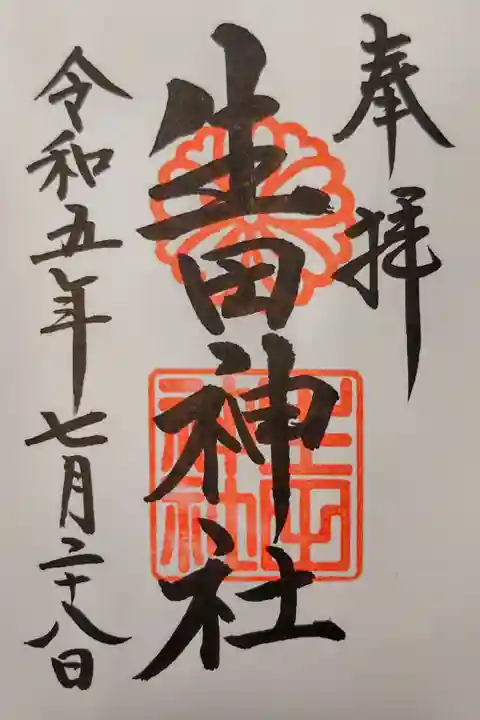 奉拝
生田神社
生田神社
令和五年七月二十八日